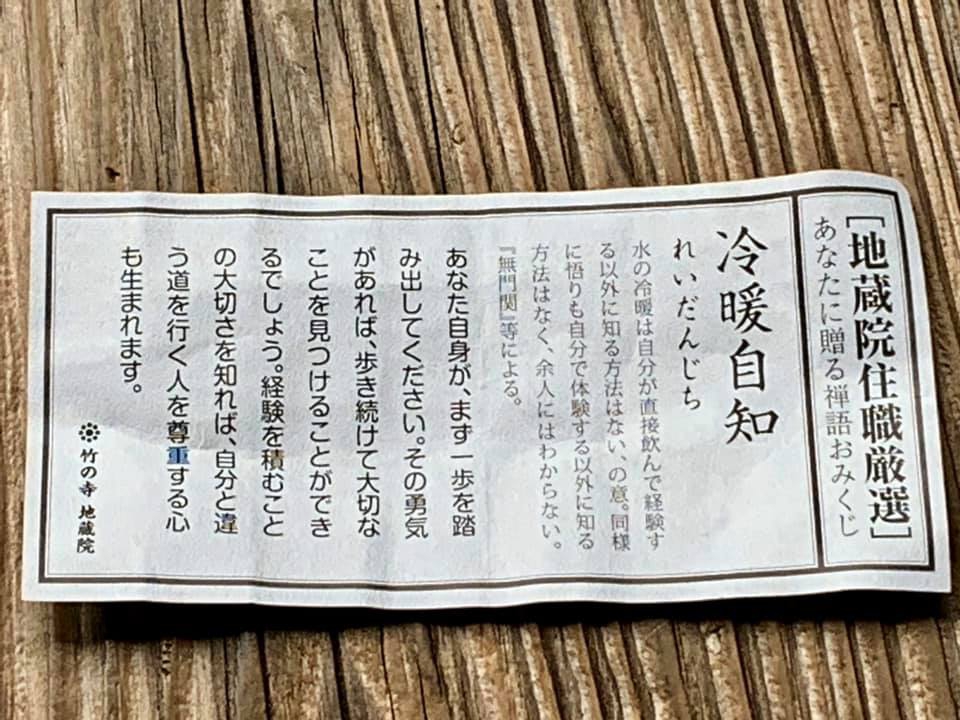 ［地蔵院住職厳選］
あなたに贈る禅語おみくじ
冷暖自知
れいだんじち
水の冷暖は自分が直接飲んで経験す
る以外に知る方法はない、の意。同様
に悟りも自分で体験する以外に知る
方法はなく、余人にはわからない。
『無門関』等による。
あなた自身が、まず一歩を踏
み出してください。その勇気
があれば、歩き続けて大切な
ことを見つけることができ
るでしょう。経験を積むこと
の大切さを知れば、自分と違
う道を行く人を尊重する心
も生まれます。
竹の寺 地蔵院